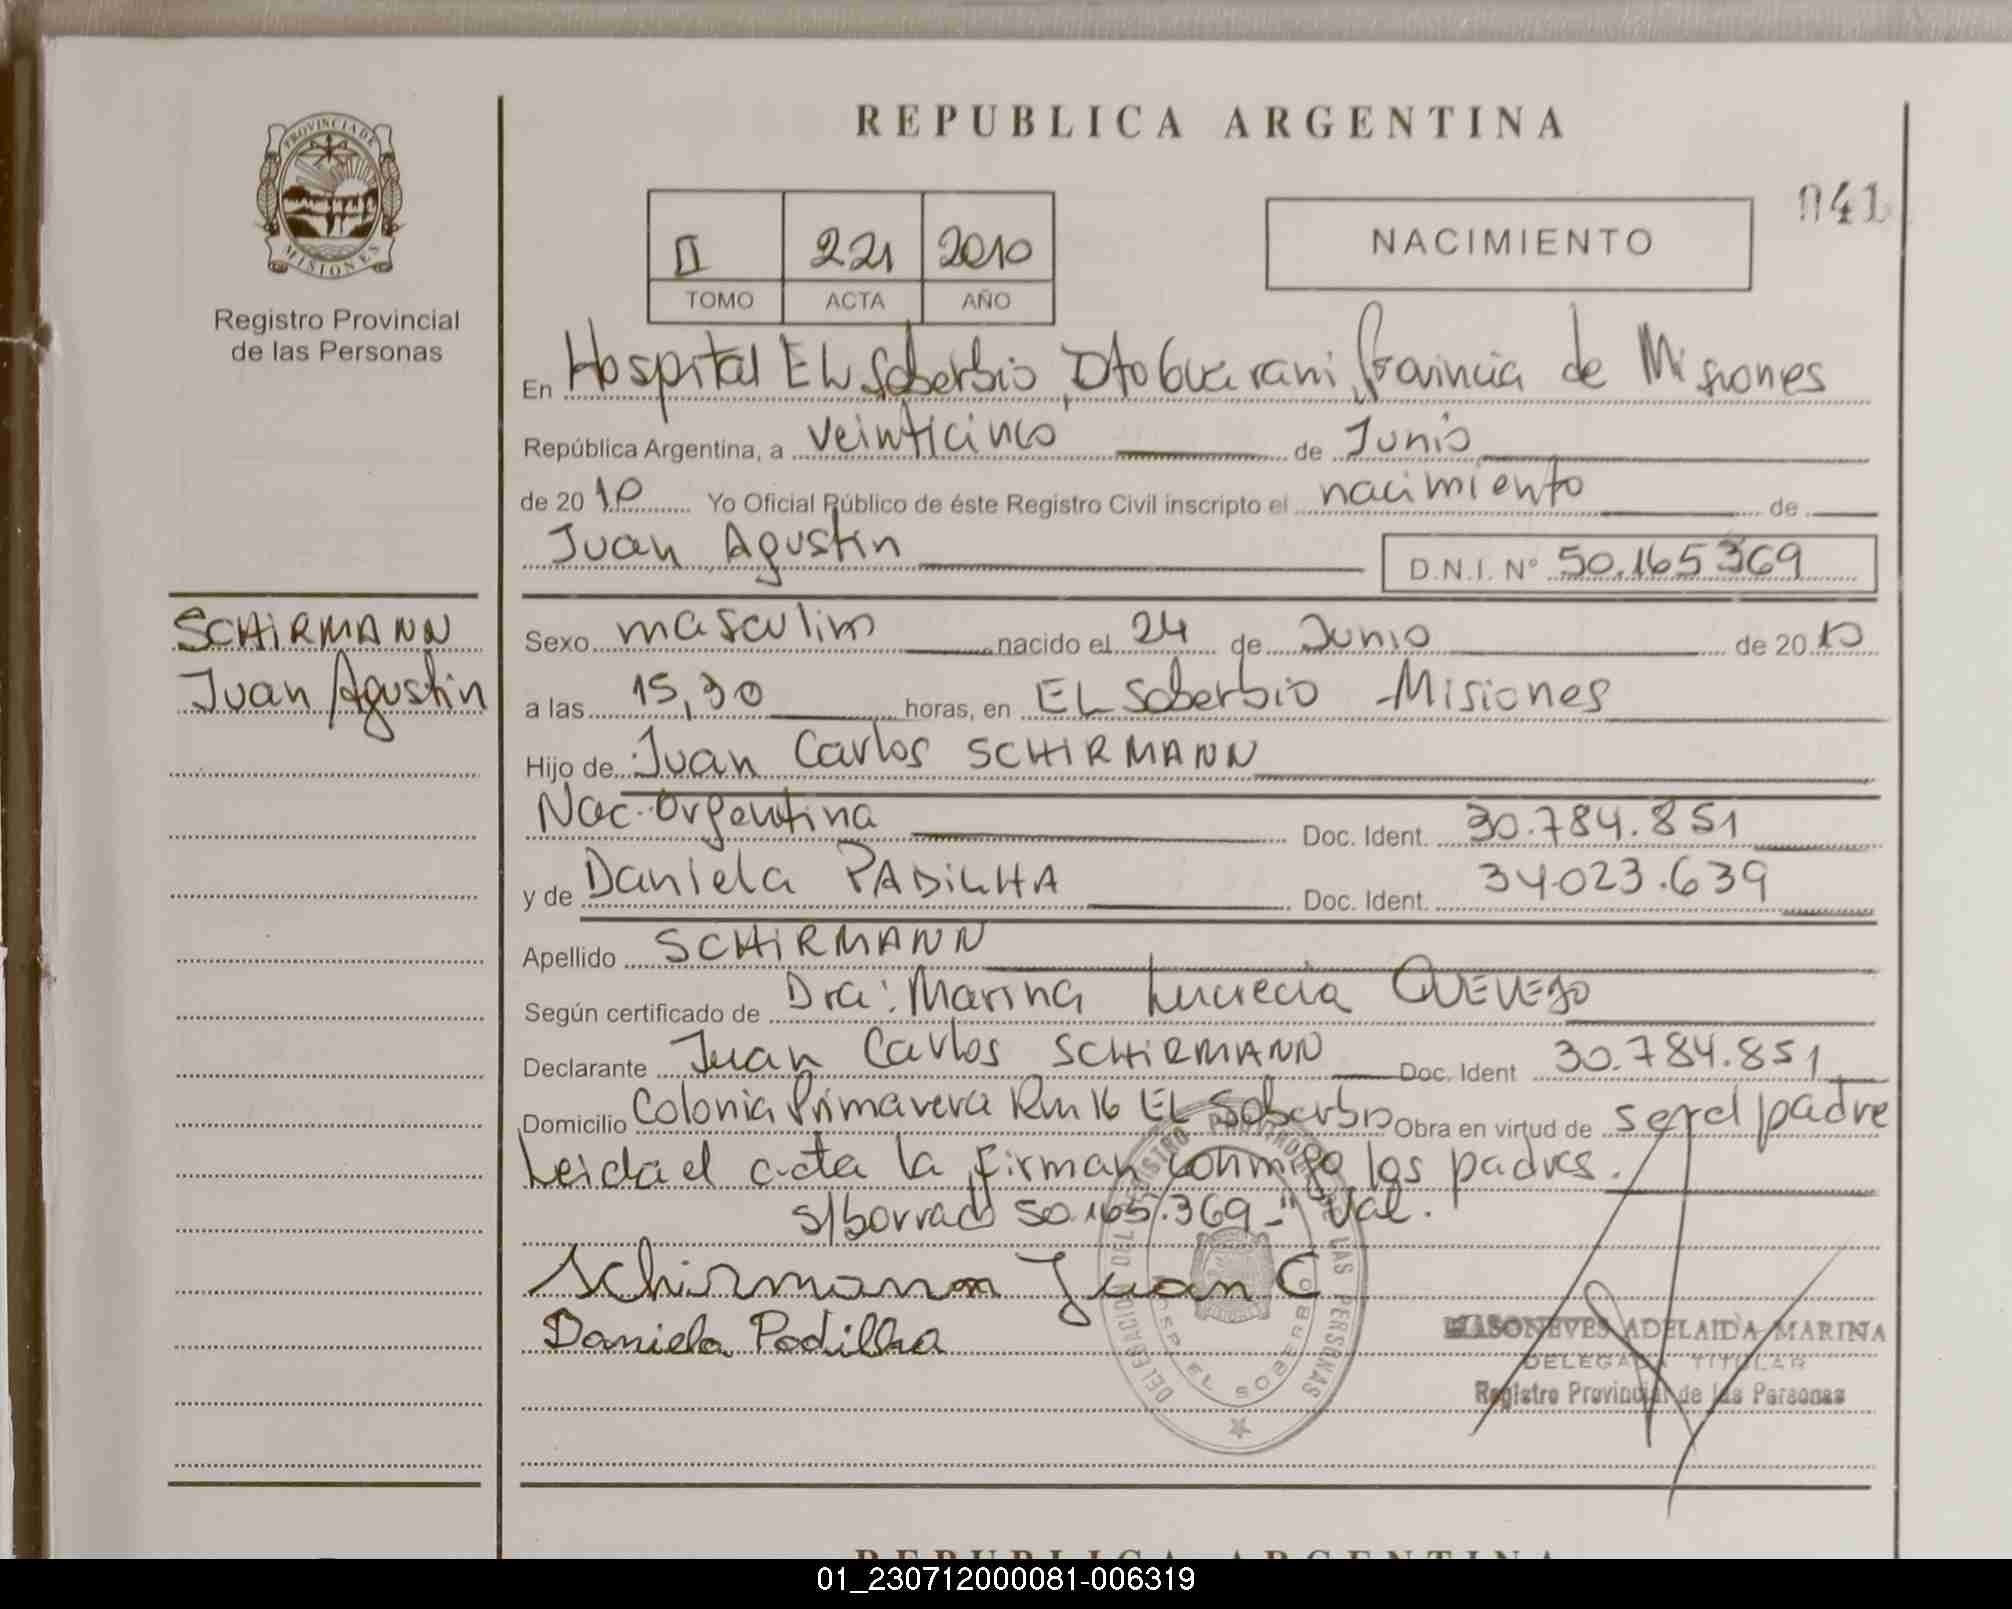 REPUBLICA ARGENTINA
PROVINCIA DE
MISIONES
Registro Provincial
de las Personas
II 221 2010
TOMO ACTA AÑO
NACIMIENTO
041
En Hospital EL Soberbio, Dto Guarani, Provincia de Misiones
República Argentina, a veinticinco de Junio
de 2010 Yo Oficial Público de éste Registro Civil inscripto el nacimiento de
Juan Agustin
D.N.I. N° 50.165369
SCHiRMANN
Juan Agustin
Sexo masculino nacido el 24 de Junio de 2010
a las 15,30 horas, en EL Soberbio - Misiones
Hijo de Juan Carlos SCHIRMANN
Nac. Argentina Doc. Ident. 30.784.851
y de Daniela PADiLHA Doc. Ident. 34.023.639
Apellido SCHiRMANN
Según certificado de Dra: Marina Lucrecia QUEVEDO
Declarante Juan Carlos SCHiRMANN Doc. Ident 30.784.851
Domicilio Colonia Primavera Km 16 EL Soberbio Obra en virtud de ser el padre
Leida el acta la firman conmigo los padres.
s/borrado 50.165.369-" Val.
Schirmann Juan C
Daniela Padilha
DELEGACION DEL REGISTRO PROVINCIAL DE LAS PERSONAS
HOSP. EL SOBERBIO
MASONEVES ADELAIDA MARINA
DELEGADA TITULAR
Registro Provincial de las Personas
REPUBLICA ARGENTINA
01_230712000081-006319